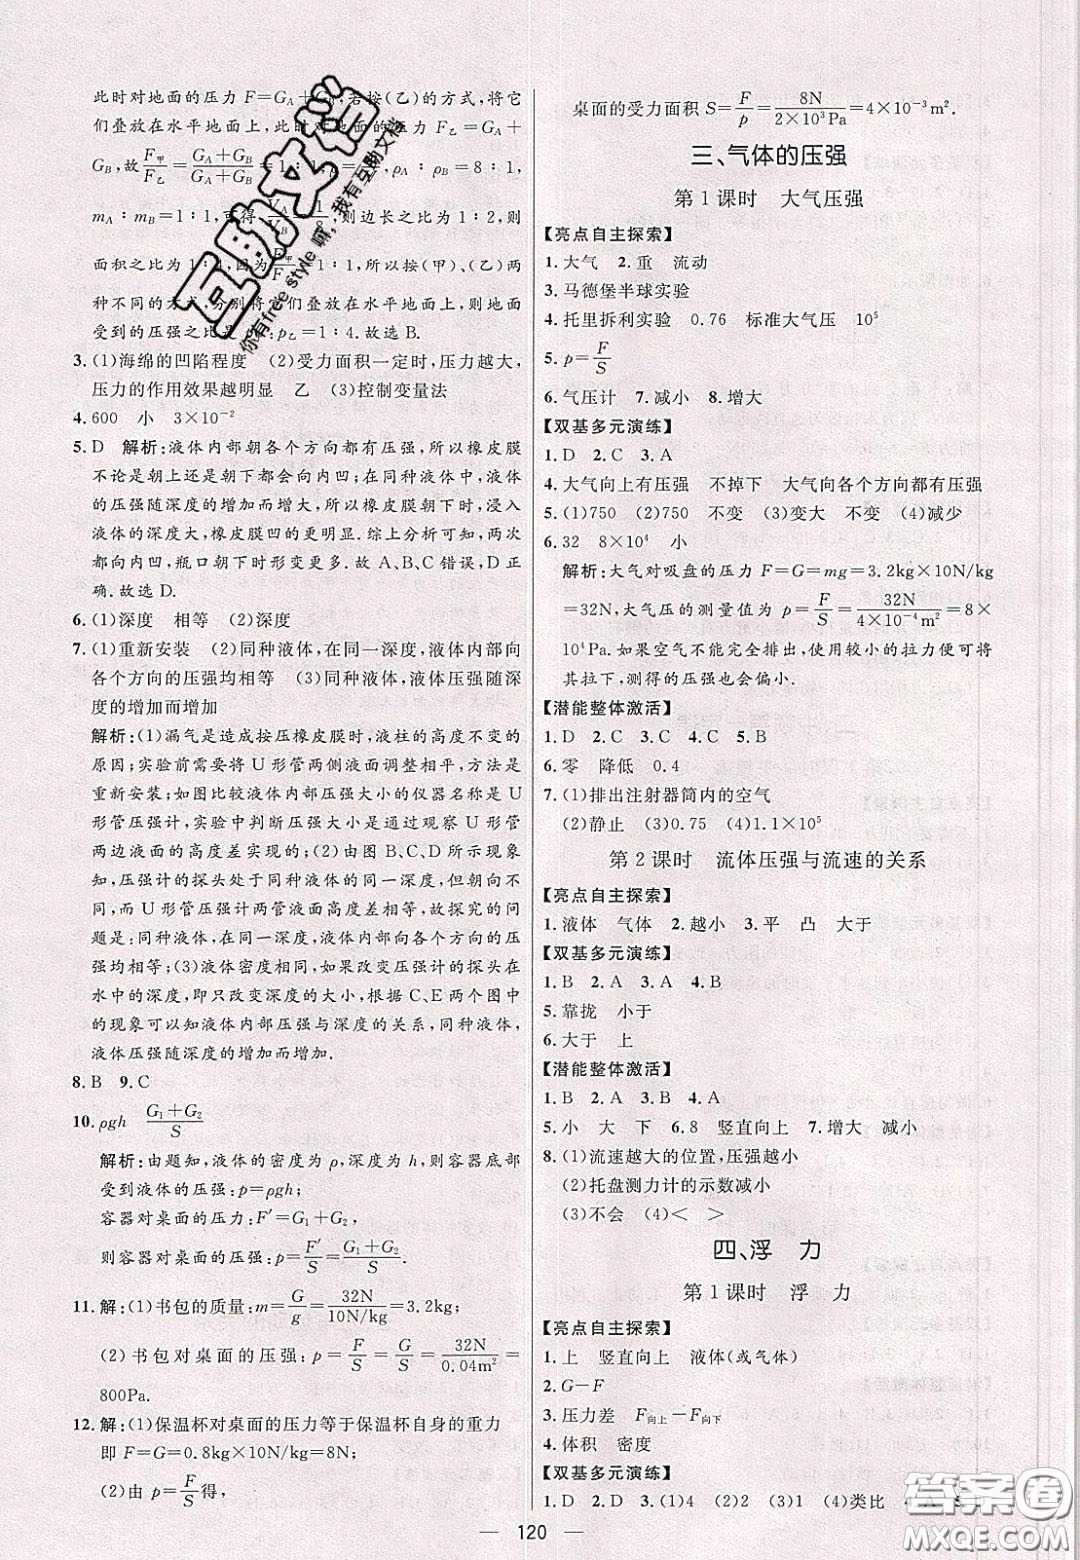 此时对地面的压力 F=G_A+G_B,若按(乙)的方式,将它
们叠放在水平地面上,此时对地面的压力 F_乙=G_A+
G_B,故 F_甲/F_乙=(G_A+G_B)/(G_A+G_B)=1∶1,ρ_A∶ρ_B=8∶1,
m_A∶m_B=1∶1,可得 V_A/V_B=1/8,则边长之比为1∶2,则
面积之比为1∶4,因为 F_甲/F_乙=1∶1,所以按(甲)、(乙)两
种不同的方式,分别将它们叠放在水平地面上,则地面
受到的压强之比是p_甲∶p_乙=1∶4.故选 B.
3.(1)海绵的凹陷程度 (2)受力面积一定时,压力越大,
压力的作用效果越明显 乙 (3)控制变量法
4.600 小 3×10⁻²
5.D 解析:液体内部朝各个方向都有压强,所以橡皮膜
不论是朝上还是朝下都会向内凹;在同种液体中,液体
的压强随深度的增加而增大,所以橡皮膜朝下时,浸入
液体的深度大,橡皮膜凹的更明显.综上分析可知,两次
都向内凹,瓶口朝下时形变更多.故 A、B、C 错误,D 正
确.故选 D.
6.(1)深度 相等 (2)深度
7.(1)重新安装 (2)同种液体,在同一深度,液体内部向
各个方向的压强均相等 (3)同种液体,液体压强随深
度的增加而增加
解析:(1)漏气是造成按压橡皮膜时,液柱的高度不变的
原因;实验前需要将 U 形管两侧液面调整相平,方法是
重新安装;如图比较液体内部压强大小的仪器名称是 U
形管压强计,实验中判断压强大小是通过观察 U 形管
两边的高度差实现的;(2)由图 B、C、D 所示现象可
知,压强计的探头处于同种液体的同一深度,探头方向
不同,而 U 形管压强计两管液面高度差相等,故探究的问
题是:同种液体,在同一深度,液体内部向各个方向的压
强均相等;(3)液体密度相同,如果改变压强计的探头在
水中的深度,即只改变深度的大小,根据 C、E 两个图中
的现象可以知液体内部压强与深度的关系,同种液体,
液体压强随深度的增加而增加.
8.B 9.C
10.ρgh (G₁+G₂)/S
解析:由题知,液体的密度为 ρ,深度为 h,则容器底部
受到液体的压强:p=ρgh;
容器对桌面的压力:F′=G₁+G₂,
则容器对桌面的压强:p=F′/S=(G₁+G₂)/S.
11.解:(1)书包的质量:m=G/g=32N/(10N/kg)=3.2kg;
(2)书包对桌面的压强:p=F/S=G/S=32N/0.04m²=
800Pa.
12.解:(1)保温杯对桌面的压力等于保温杯自身的重力
即 F=G=0.8kg×10N/kg=8N;
(2)由 p=F/S得,
桌面的受力面积 S=F/p=8N/(2×10³Pa)=4×10⁻³m².
三、气体的压强
第1课时 大气压强
【亮点自主探索】
1.大气 2.重 流动
3.马德堡半球实验
4.托里拆利实验 0.76 标准大气压 10⁵
5.p=F/S
6.气压计 7.减小 8.增大
【双基多元演练】
1.D 2.C 3.A
4.大气向上有压强 不掉下 大气向各个方向都有压强
5.(1)750 (2)750 不变 (3)变大 不变 (4)减少
6.32 8×10⁴ 小
解析:大气对吸盘的压力 F=G=mg=3.2kg×10N/kg
=32N,大气压的测量值为 p=F/S=32N/(4×10⁻⁴m²)=8×
10⁴Pa.如果空气不能完全排出,使用较小的拉力便可将
其拉下,测得的压强也会偏小.
【潜能整体激活】
1.D 2.C 3.C 4.C 5.B
6.零 降低 0.4
7.(1)排出注射器筒内的空气
(2)静止 (3)0.75 (4)1.1×10⁵
第2课时 流体压强与流速的关系
【亮点自主探索】
1.液体 气体 2.越小 3.平 凸 大于
【双基多元演练】
1.B 2.A 3.A 4.B
5.靠拢 小于
6.大于 上
【潜能整体激活】
1.B 2.A 3.B 4.A
5.小 大 下 6.8 竖直向上 7.增大 减小
8.(1)流速越大的位置,压强越小
(2)托盘测力计的示数减小
(3)不会 (4)< >
四、浮 力
第1课时 浮 力
【亮点自主探索】
1.上 竖直向上 液体(或气体)
2.G-F
3.压力差 F向上-F向下
4.体积 密度
【双基多元演练】
1.D 2.D 3.(1)4 (2)2 (3)1 (4)类比
120
互助文档
你有free style 嘛,我有互助文档
答案圈
MXQE.COM